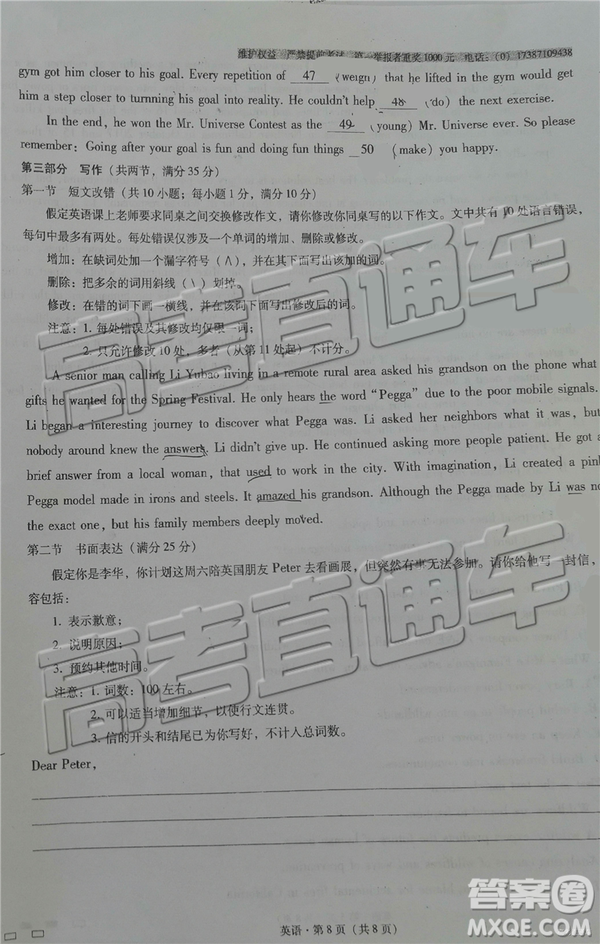 维护权益 严禁提前考试 第一举报者重奖1000元 电话:(0)17387109438
gym got him closer to his goal. Every repetition of 47 (weigh) that he lifted in the gym would get him
one step closer to turnning his goal into reality. He couldn't help 48 (do) the next exercise.
In the end, he won the Mr. Universe Contest as the 49 (young) Mr. Universe ever. So please
remember: Going after your goal is fun and doing fun things 50 (make) you happy.
第三部分 写作(共两节,满分35分)
第一节 短文改错(共10小题;每小题1分,满分10分)
假定英语课上老师要求同桌之间交换修改作文,请你修改你同桌写的以下作文。文中共有10处语言错误,
每句中最多有两处。每处错误仅涉及一个单词的增加、删除或修改。
增加:在缺词处加一个漏字符号(∧),并在其下面写出该加的词。
删除:把多余的词用斜线(\)划掉。
修改:在错的词下画一横线,并在该词下面写出修改后的词。
注意:1. 每处错误及其修改均仅限一词;
2. 只允许修改10处,多者(从第11处起)不计分。
A senior man calling Li Yubao living in a remote rural area asked his grandson on the phone what
gifts he wanted for the Spring Festival. He only hears the word "Pegga" due to the poor mobile signals.
Li began a interesting journey to discover what Pegga was. Li asked her neighbors what it was, but
nobody around knew the answers. Li didn't give up. He continued asking more people patient. He got a
brief answer from a local woman, that used to work in the city. With imagination, Li created a pink
Pegga model made in irons and steels. It amazed his grandson. Although the Pegga made by Li was no
the exact one, but his family members deeply moved.
第二节 书面表达(满分25分)
假定你是李华,你计划这周六陪英国朋友Peter去看画展,但突然有事无法参加。请你给他写一封信,
容包括:
1. 表示歉意;
2. 说明原因;
3. 预约其他时间。
注意:1. 词数:100左右。
2. 可以适当增加细节,以使行文连贯。
3. 信的开头和结尾已为你写好,不计入总词数。
Dear Peter,
英语·第8页(共8页)
高考直通车
高考直通车
答案圈
MXQE.COM